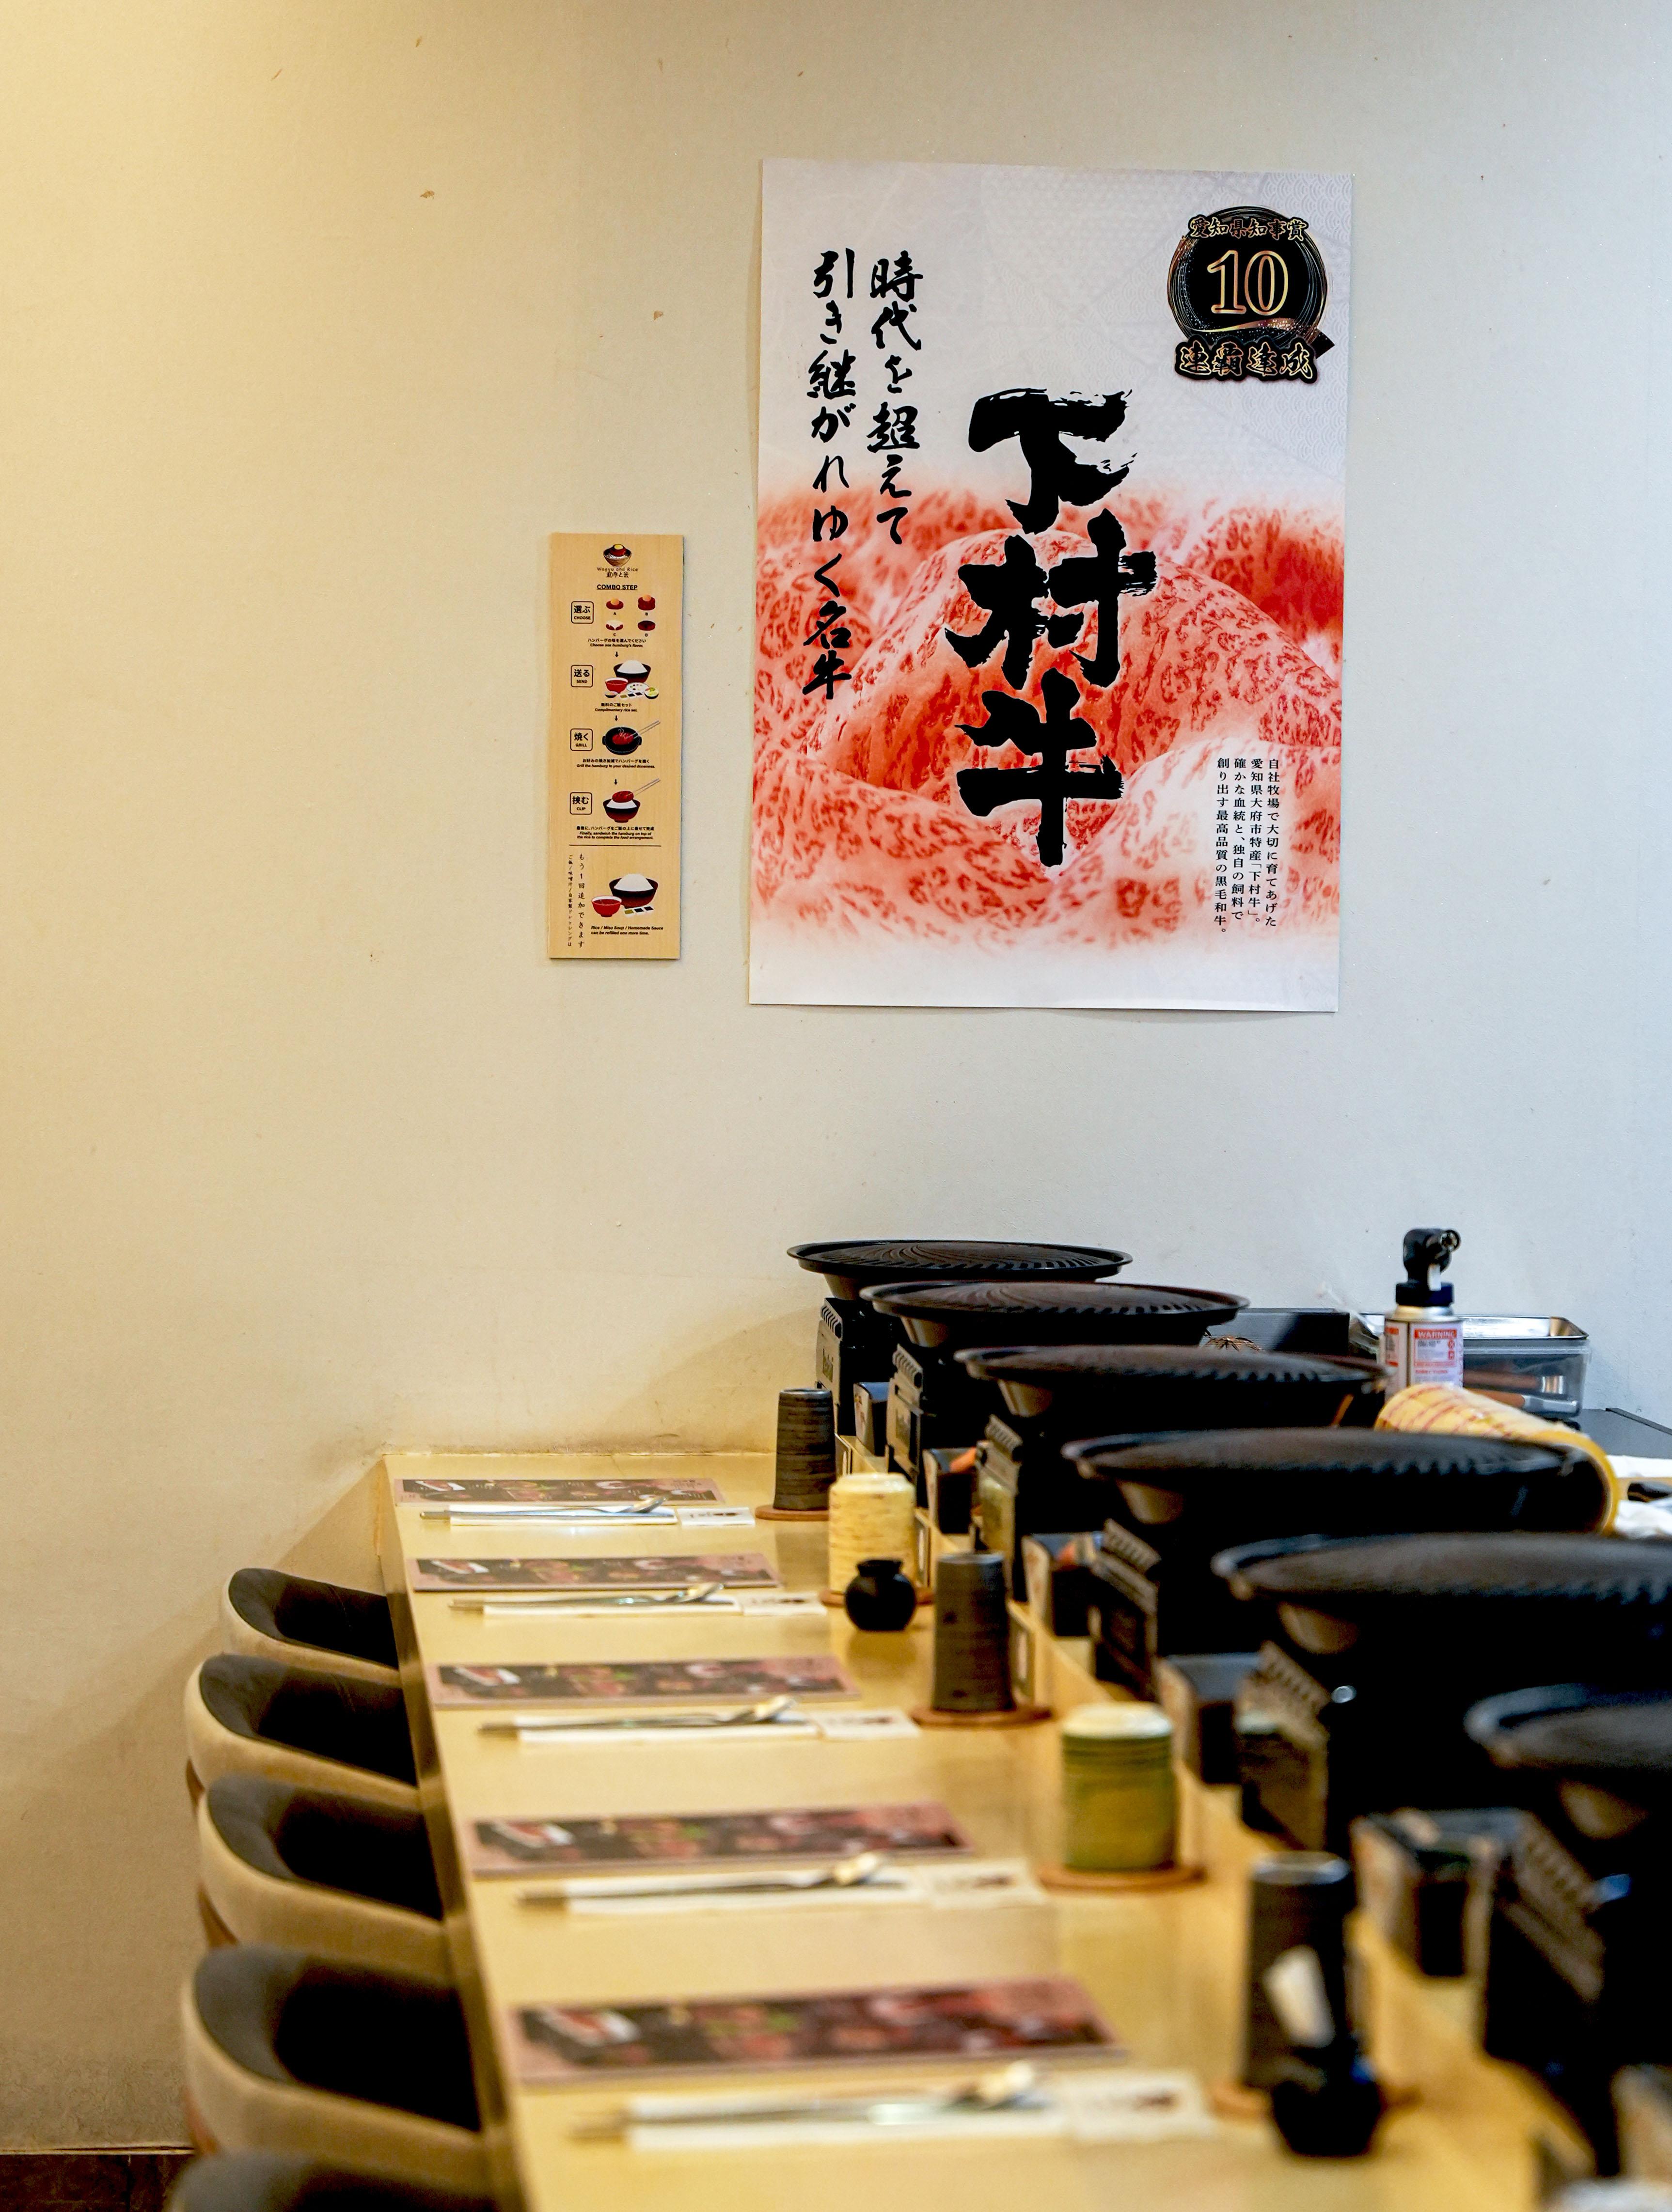 Wagyu and Rice
和牛と米
COMBO STEP
選ぶ
CHOOSE
A
B
C
D
ハンバーグの味を選んでください
Choose one hamburg's flavor.
送る
SEND
無料のご飯セット
Complimentary rice set.
焼く
GRILL
お好みの焼き加減でハンバーグを焼く
Grill the hamburg to your desired doneness.
挟む
CLIP
最後に、ハンバーグをご飯の上に乗せて完成
Finally, sandwich the hamburg on top of
the rice to complete the food arrangement.
もう1回追加できます
Rice / Miso Soup / Homemade Sauce
can be refilled one more time.
愛知県知事賞
10
連覇達成
下村牛
時代を超えて
引き継がれゆく名牛
自社牧場で大切に育てあげた
愛知県大府市特産「下村牛」。
確かな血統と、独自の飼料で
創り出す最高品質の黒毛和牛。
WARNING